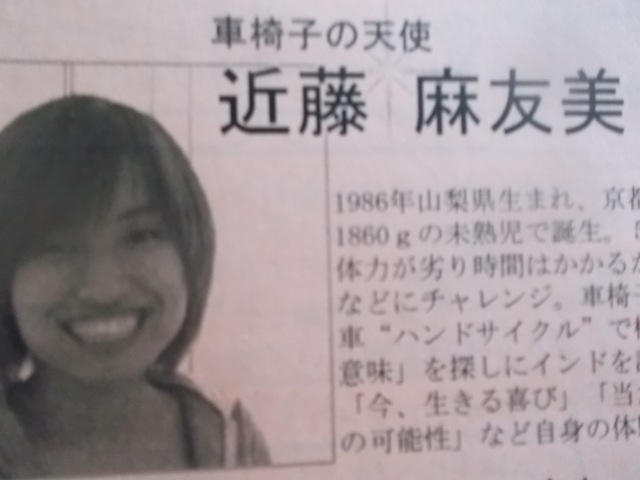 車椅子の天使
近藤 麻友美
1986年山梨県生まれ、京都
1860gの未熟児で誕生。
体力が劣り時間はかかるが
などにチャレンジ。車椅子
車“ハンドサイクル”で
意味」を探しにインドを
「今、生きる喜び」「当
の可能性」など自身の体